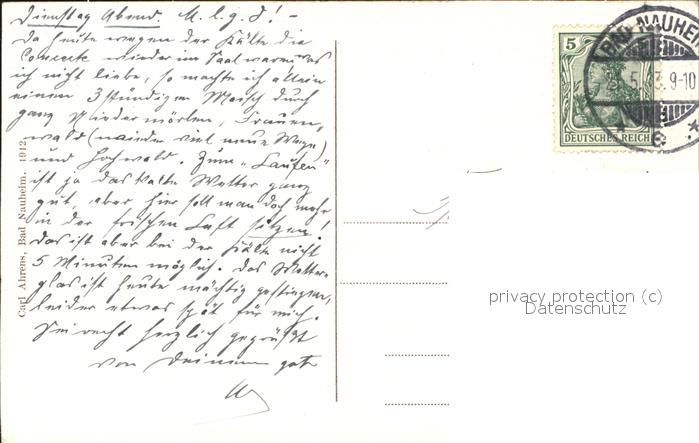 Dienstag Abend. M. l. g. J! –
Da heute wegen der Kälte die
Concerte wieder im Saal waren was
ich nicht liebe, so machte ich allein
einen 3stündigen Marsch durch
ganz Niedermörlen, Frauen,
wald (wieder viel neue Wege)
und Hochwald. Zum "Laufen"
ist ja das kalte Wetter ganz
gut, aber hier soll man doch mehr
in der frischen Luft sitzen!
Das ist aber bei der Kälte nicht
5 Minuten möglich. Das Wetter
glas ist heute mächtig gestiegen,
leider etwas spät für mich.
Sei recht herzlich gegrüßt
von Deinem gut
Carl Ahrens, Bad Nauheim. 1912.
5
DEUTSCHES REICH
BAD NAUHEIM
5. 9-10
privacy protection (c)
Datenschutz